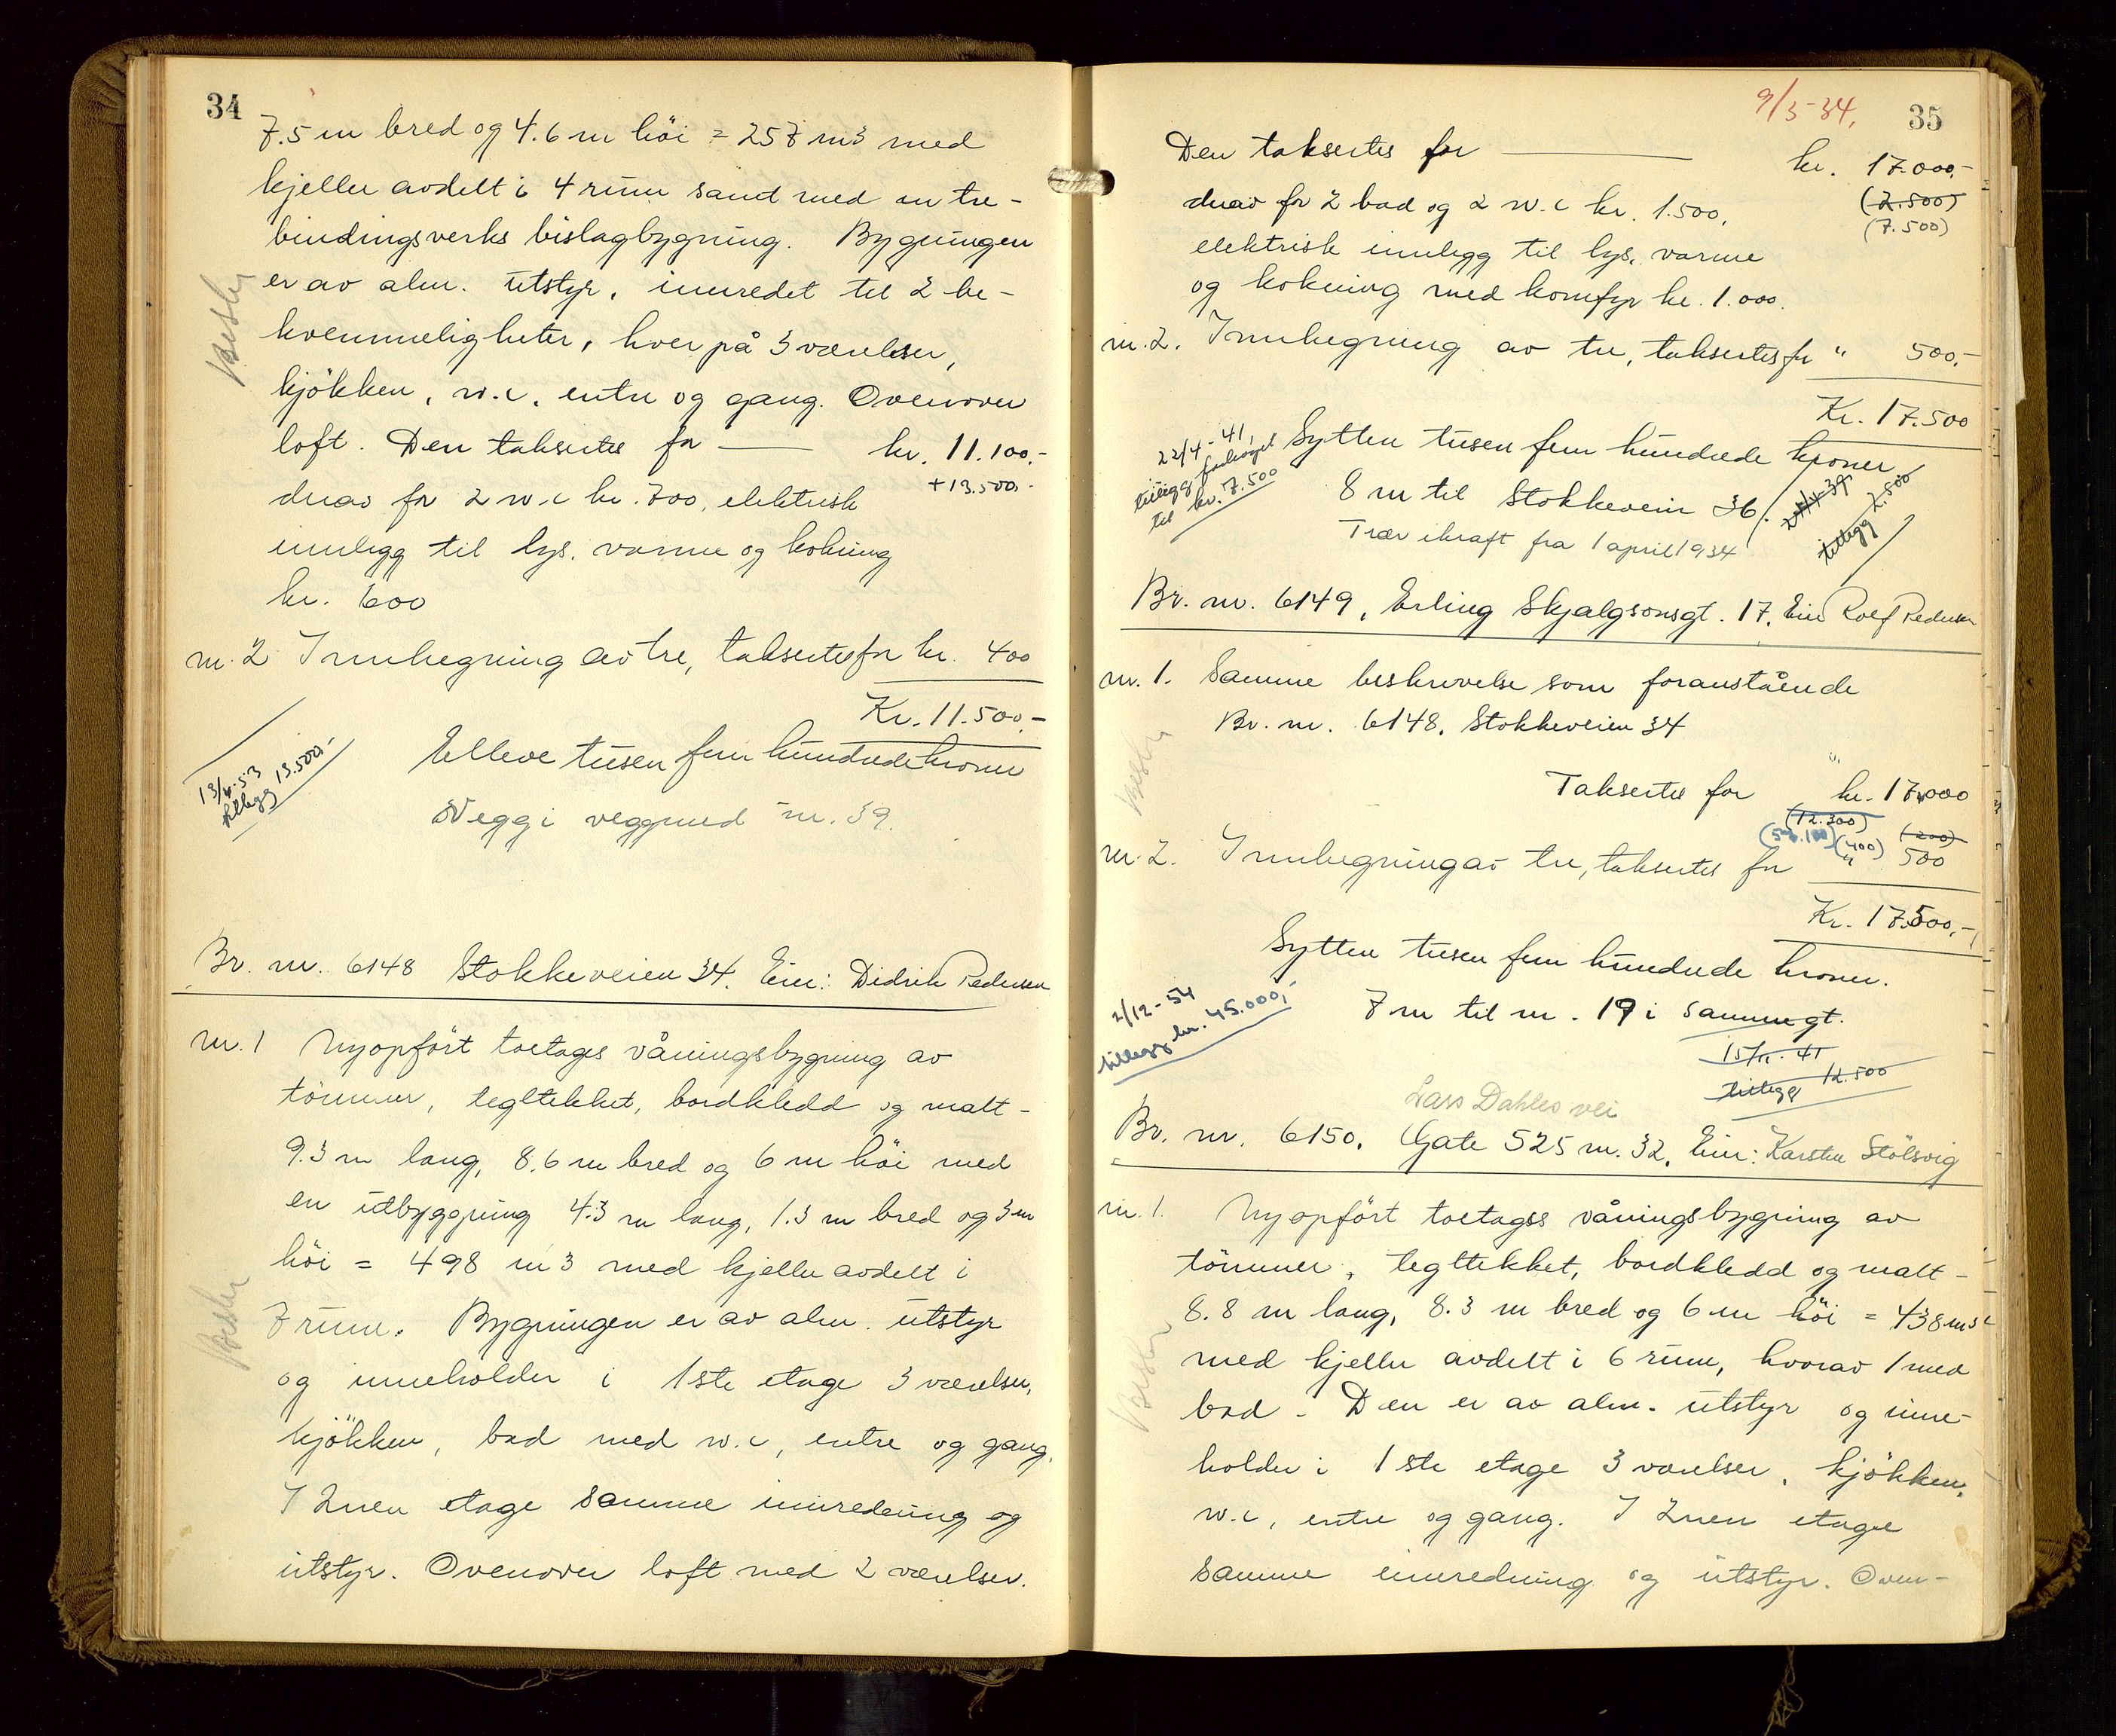 34
7.5 m bred og 4.6 m höi = 257 m3 med
kjeller avdelt i 4 rum samt med en tre-
bindingsverks bislagbygning. Bygningen
er av alm. utstyr, innredet til 2 be-
kvemmeligheter, hver på 3 værelser,
kjökken, w.c, entre og gang. Ovenover
loft. Den takseres for — kr. 11.100.-
+ 13.500.-
derav for 2 w.c kr. 700, elektrisk
innlegg til lys, varme og kokning
kr. 600
nr. 2 Innhegning av tre, takseres for kr. 400
Kr. 11.500.-
Elleve tusen fem hundrede kroner
13/4-53
tillegg 13.500.-
Vegg i vegg med nr. 39.
Br. nr. 6148 Stokkeveien 34. Eier: Didrik Pedersen
nr. 1 Nyopfört toetages våningsbygning av
tömmer, tegltekket, bordkledd og malt -
9.3 m lang, 8.6 m bred og 6 m höi med
en utbyggning 4.3 m lang, 1.3 m bred og 3 m
höi = 498 m3 med kjeller avdelt i
7 rum. Bygningen er av alm. utstyr
og inneholder i 1ste etage 3 værelser,
kjökken, bad med w.c, entre og gang.
I 2nen etage samme innredning og
utstyr. Ovenover loft med 2 værelser.
9/3-34.
35
Den takseres for — kr. 17.000.-
(2.500)
(7.500)
derav for 2 bad og 2 w.c kr. 1.500,
elektrisk innlegg til lys, varme
og kokning med komfyr kr. 1.000.
nr. 2. Innhegning av tre, takseres for " 500.-
Kr. 17.500
Sytten tusen fem hundrede kroner
22/4-41,
tillegg forhöyet
til kr. 7.500
8 m til Stokkeveien 36.
tillegg 2.500
Trær ikraft fra 1 april 1934
Br. nr. 6149, Erling Skjalgsonsgt. 17. Eier Rolf Pedersen
nr. 1. Samme beskrivelse som foranstående
Br. nr. 6148, Stokkeveien 34
Takseres for kr. 17.000
(12.300) (200)
(400)
nr. 2. Innhegning av tre, takseres for " 500
Kr. 17.500.-
Sytten tusen fem hundrede kroner.
7 m til nr. 19 i samme gt.
2/12-54
tillegg kr. 45.000,-
15/11-41
tillegg 12.500
Lars Dahles vei
Br. nr. 6150. Gate 525 nr. 32. Eier: Karsten Stölsvig
nr. 1. Nyopfört toetages våningsbygning av
tömmer, tegltekket, bordkledd og malt -
8.8 m lang, 8.3 m bred og 6 m höi = 438 m3
med kjeller avdelt i 6 rum, hvorav 1 med
bad. Den er av alm. utstyr og inne-
holder i 1ste etage 3 værelser, kjökken,
w.c, entre og gang. I 2nen etage
samme innredning og utstyr. Oven-